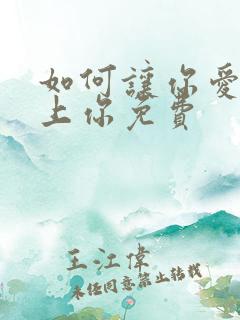 如何讓你愛
上你免費
王江偉
未经同意禁止转载